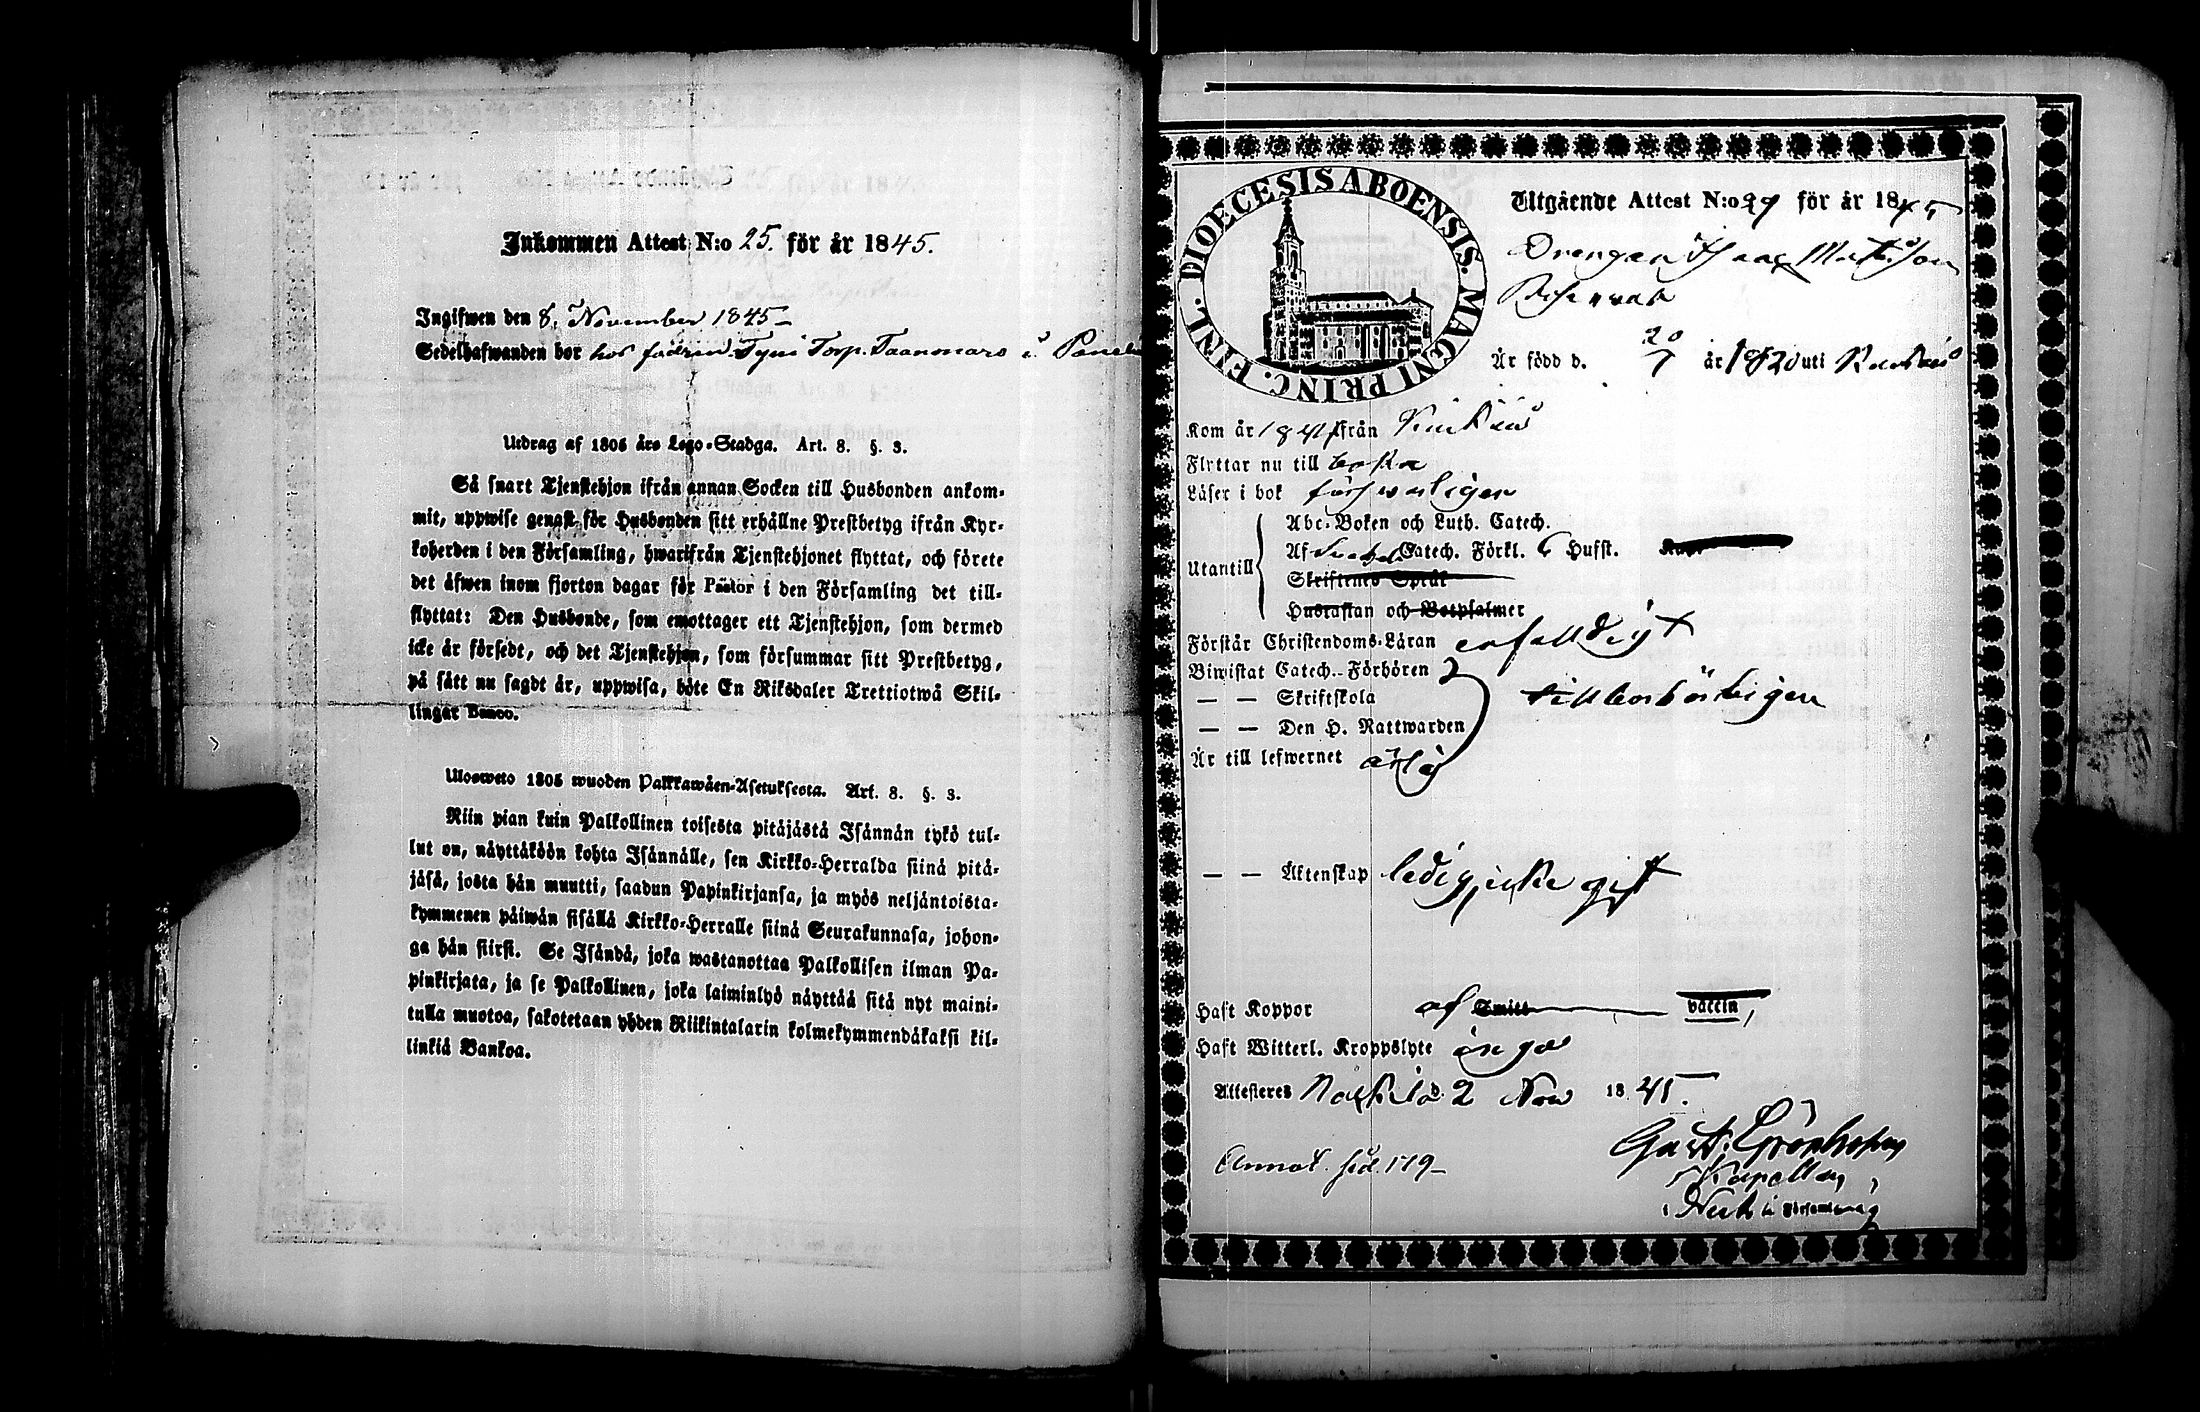 Inkommen Attest N:o 25. för år 1845.
Ingifwen den 8. November 1845
Sedelhafwanden bor hos fadren Tyni Torp. Taanmars i
Utdrag af 1805 års Lego-Stadga. Art. 8. §. 3.
Så snart Tjenstehjon ifrån annan Socken till Husbonden ankom-
mit, uppwise genast för Husbonden sitt erhållne Prestbetyg ifrån Kyr-
koherden i den Församling, hwarifrån Tjenstehjonet flyttat, och förete
det äfwen inom fjorton dagar för Pastor i den Församling det till-
flyttat: Den Husbonde, som emottager ett Tjenstehjon, som dermed
icke är försedt, och det Tjenstehjon, som försummar sitt Prestbetyg,
på sätt nu sagdt är, uppwisa, böte En Riksdaler Trettiotwå Skil-
lingar Banco.
Ulosweto 1805 wuoden Palkkawäen-Asetuksesta. Art. 8. §. 3.
Niin pian kuin Palkollinen toisesta pitäjästä Isännän tykö tul-
lut on, näyttäköön kohta Isännälle, sen Kirkko-Herralda siinä pitä-
jäsä, josta hän muutti, saadun Papinkirjansa, ja myös neljäntoista-
kymmenen päiwän sisällä Kirkko-Herralle siinä Seurakunnasa, johon-
ga hän siirsi. Se Isändä, joka wastanottaa Palkollisen ilman Pa-
pinkirjata, ja se Palkollinen, joka laiminlyö näyttää sitä nyt maini-
tulla muotoa, sakotetaan yhden Riikintalarin kolmekymmendäkaksi kil-
linkiä Bankoa.
DIOECESIS ABOENSIS. MAGNI PRINC. FINL.
Utgående Attest N:o 29 för år 1845
Drengen Isaac Matsson
Är född d. 20/7 år 1820 uti
Kom år från
Flyttar nu till
Läser i bok förswarligen
Utantill
Abc-Boken och Luth. Catech.
Af Catech. Förkl. Husft.
Skriftenes Språk
Hustaflan och Botpsalmer
Förstår Christendoms-Läran enfalldigt
Biwistat Catech.-Förhören
— — Skriftskola tillbörligen
— — Den H. Nattwarden
Är till lefwernet ärlig
— — Äktenskap ledig, icke gift
Haft Koppor af Smitt vaccin
Haft Witterl. Kroppslyte inga
Attesteres d. 2 Nov 1845.
Annot. sid. 179
Gust. Grönholm
Kapellan
i Församling